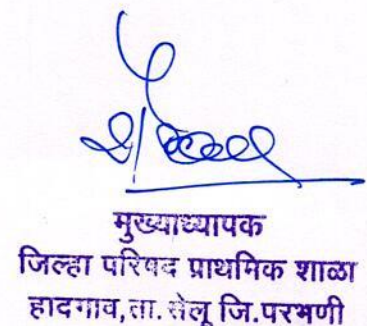 मुख्याध्यापक
जिल्हा परिषद प्राथमिक शाळा
हादगाव, ता. सेलू जि.परभणी